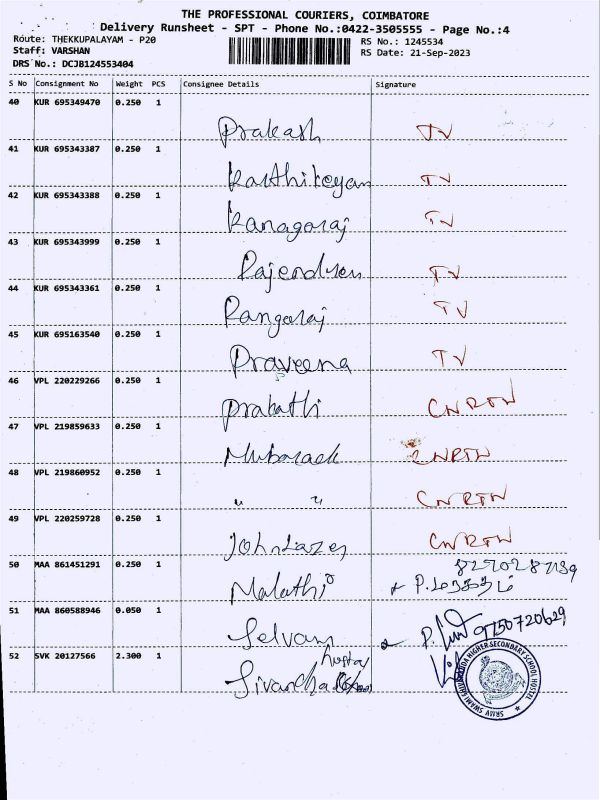 THE PROFESSIONAL COURIERS, COIMBATORE
Delivery Runsheet - SPT - Phone No.:0422-3505555 - Page No.:4
Route: THEKKUPALAYAM - P20
RS No.: 1245534
Staff: VARSHAN
RS Date: 21-Sep-2023
DRS No.: DCJB124553404
S No Consignment No Weight PCS Consignee Details Signature
40 KUR 695349470 0.250 1
Prakash TV
41 KUR 695343387 0.250 1
Karthikeyan TV
42 KUR 695343388 0.250 1
Kanagaraj TV
43 KUR 695343999 0.250 1
Rajendran TV
44 KUR 695343361 0.250 1
Rangaraj TV
45 KUR 695163540 0.250 1
Praveena TV
46 VPL 220229266 0.250 1
Prabathi CNRTN
47 VPL 219859633 0.250 1
Mubarack CNRTN
48 VPL 219860952 0.250 1
" " CNRTN
49 VPL 220259728 0.250 1
Johnlazer CNRTN
50 MAA 861451291 0.250 1
Malathi
51 MAA 860588946 0.050 1
Selvam 9750720629
52 SVK 20127566 2.300 1
HIGHER SECONDARY SCHOOL HOSTEL